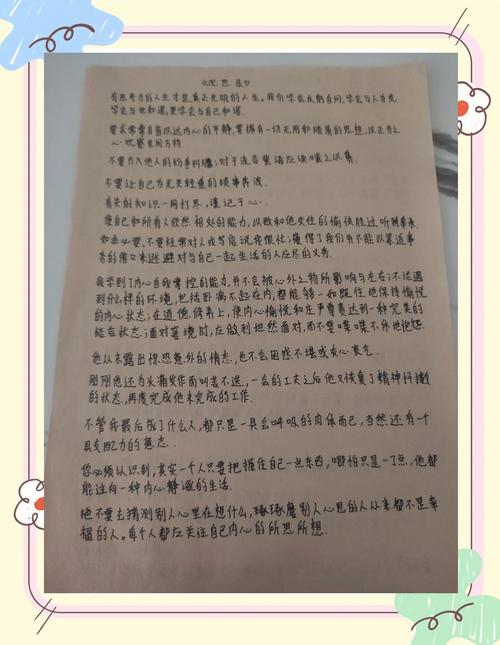 《沉思录》
有思考力的人生才是真正光明的人生。我们学会反躬自问，学会与人才是
学会与他和谐，更学会与自己和谐.
要求常常自省以达内心的平静，要拥有一切无用和琐屑的思想，这正当之
心观察世间万物
不要介入他人的纷争纠缠；对于流言蜚语应该嗤之以鼻。
不要让自己为无关轻重的琐事奔波。
有关的知识一网打尽，谨记于心。
使自己和所有人欣然相处的能力，以致和他交往的愉快胜过听到奉承.
如非必要，不要经常对人或写信说我很忙；懂得了我们并不能以紧迫事
务的借口来逃避对与自己一起生活的人应尽的义务.
我学到了内心自我掌控的能力，并不会被心外之物所影响与左右；不论遇
到什么样的环境，包括卧病不起在内，都能够一如既往地保持愉悦
的内心状态；在道德修养上，使内心愉悦和庄严尊贵达到一种完美的
结合状态；面对窘境时，应做到坦然面对，而不要喋喋不休地抱怨.
他从未露出惊恐意外的情态，也不会困惑不堪或灰心丧气.
刚刚他还为头痛发作而叫苦不迭，一会的工夫之后他又恢复了精神抖擞
的状态，再度完成他未完成的工作.
不管我最后成了什么人，都只是一具会呼吸的肉体而已，当然还有一个
具支配力的意志.
你必须认识到，其实一个人只要把握住自己一点东西，哪怕只是一丁点，他都
能过向一种内心静谧的生活.
绝不要去猜测别人心里在想什么，琢琢磨别人心思的人从来都不是幸
福的人。每个人都应关注自己内心的所思所想.